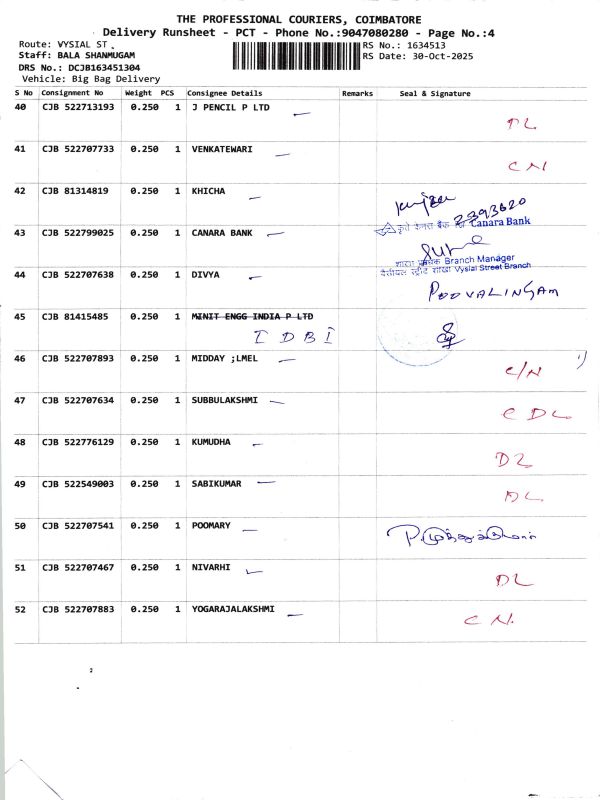 THE PROFESSIONAL COURIERS, COIMBATORE
Delivery Runsheet - PCT - Phone No.:9047080280 - Page No.:4
Route: VYSIAL ST . RS No.: 1634513
Staff: BALA SHANMUGAM RS Date: 30-Oct-2025
DRS No.: DCJB163451304
Vehicle: Big Bag Delivery
S No Consignment No Weight PCS Consignee Details Remarks Seal & Signature
40 CJB 522713193 0.250 1 J PENCIL P LTD
DL
41 CJB 522707733 0.250 1 VENKATEWARI
CN
42 CJB 81314819 0.250 1 KHICHA
2393620
कृते केनरा बैंक Canara Bank
43 CJB 522799025 0.250 1 CANARA BANK
शाखा प्रबंधक Branch Manager
वैसीयल स्ट्रीट शाखा Vysial Street Branch
44 CJB 522707638 0.250 1 DIVYA
POOVALINGAM
45 CJB 81415485 0.250 1 MINIT ENGG INDIA P LTD
IDBI
46 CJB 522707893 0.250 1 MIDDAY ;LMEL
C/N
47 CJB 522707634 0.250 1 SUBBULAKSHMI
CDL
48 CJB 522776129 0.250 1 KUMUDHA
DL
49 CJB 522549003 0.250 1 SABIKUMAR
DL
50 CJB 522707541 0.250 1 POOMARY
51 CJB 522707467 0.250 1 NIVARHI
DL
52 CJB 522707883 0.250 1 YOGARAJALAKSHMI
CN.